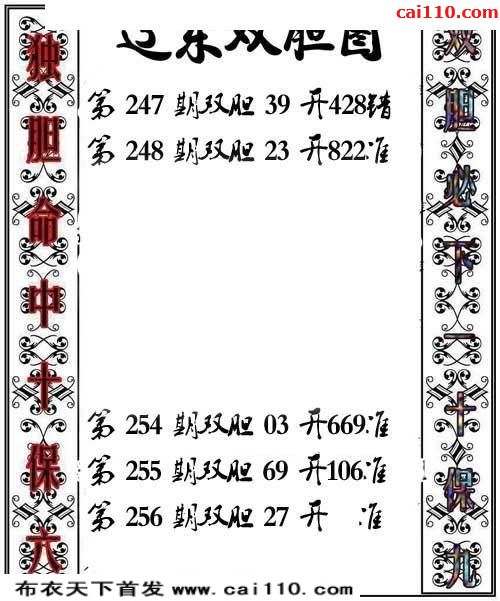 cai110.com
辽东双胆图
第 247 期双胆 39 开428错
第 248 期双胆 23 开822准
第 254 期双胆 03 开669准
第 255 期双胆 69 开106准
第 256 期双胆 27 开 准
独胆命中十保六
双胆必下一十保九
布衣天下首发 www.cai110.com